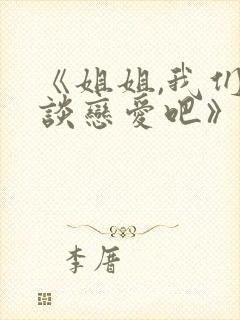 《姐姐,我们
談戀愛吧》
李厝